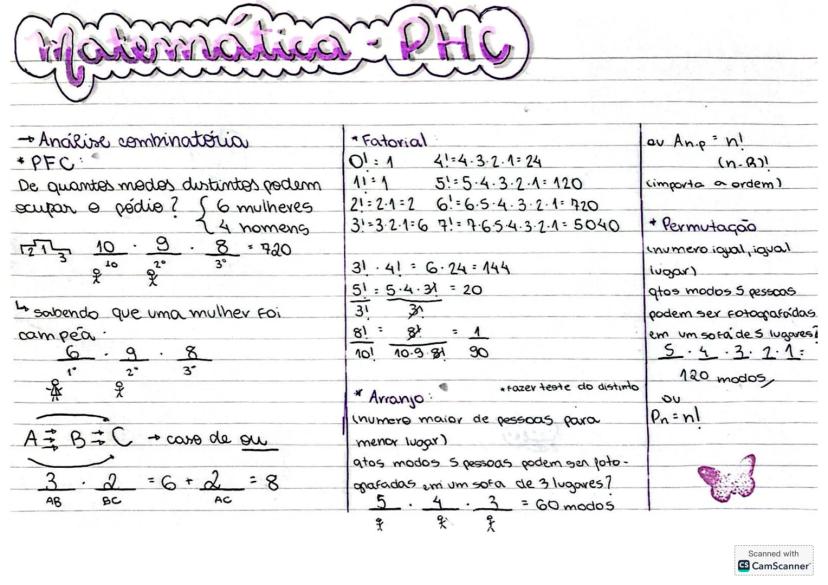 Matemática - PHC
→ Análise combinatória
* PFC:
De quantos modos distintos podem
ocupar o pódio? { 6 mulheres
4 homens
2 1 3 10 . 9 . 8 = 720
1º 2º 3º
↳ sabendo que uma mulher foi
campeã.
6 . 9 . 8
1º 2º 3º
A ⇉ B ⇉ C → caso de ou
3 . 2 = 6 + 2 = 8
AB BC AC
* Fatorial:
0! = 1 4! = 4.3.2.1 = 24
1! = 1 5! = 5.4.3.2.1 = 120
2! = 2.1 = 2 6! = 6.5.4.3.2.1 = 720
3! = 3.2.1 = 6 7! = 7.6.5.4.3.2.1 = 5040
3! . 4! = 6.24 = 144
5! = 5.4.3! = 20
3! 3!
8! = 8! = 1
10! 10.9.8! 90
* Arranjo: *fazer teste do distinto
(numero maior de pessoas para
menor lugar)
qtos modos 5 pessoas podem ser foto-
grafadas em um sofa de 3 lugares?
5 . 4 . 3 = 60 modos
ou An.p = n!
(n-R)!
(importa a ordem)
* Permutação
(numero igual, igual
lugar)
qtos modos 5 pessoas
podem ser fotografadas
em um sofá de 5 lugares?
5 . 4 . 3 . 2 . 1 =
120 modos,
ou
Pn = n!
Scanned with
CS CamScanner